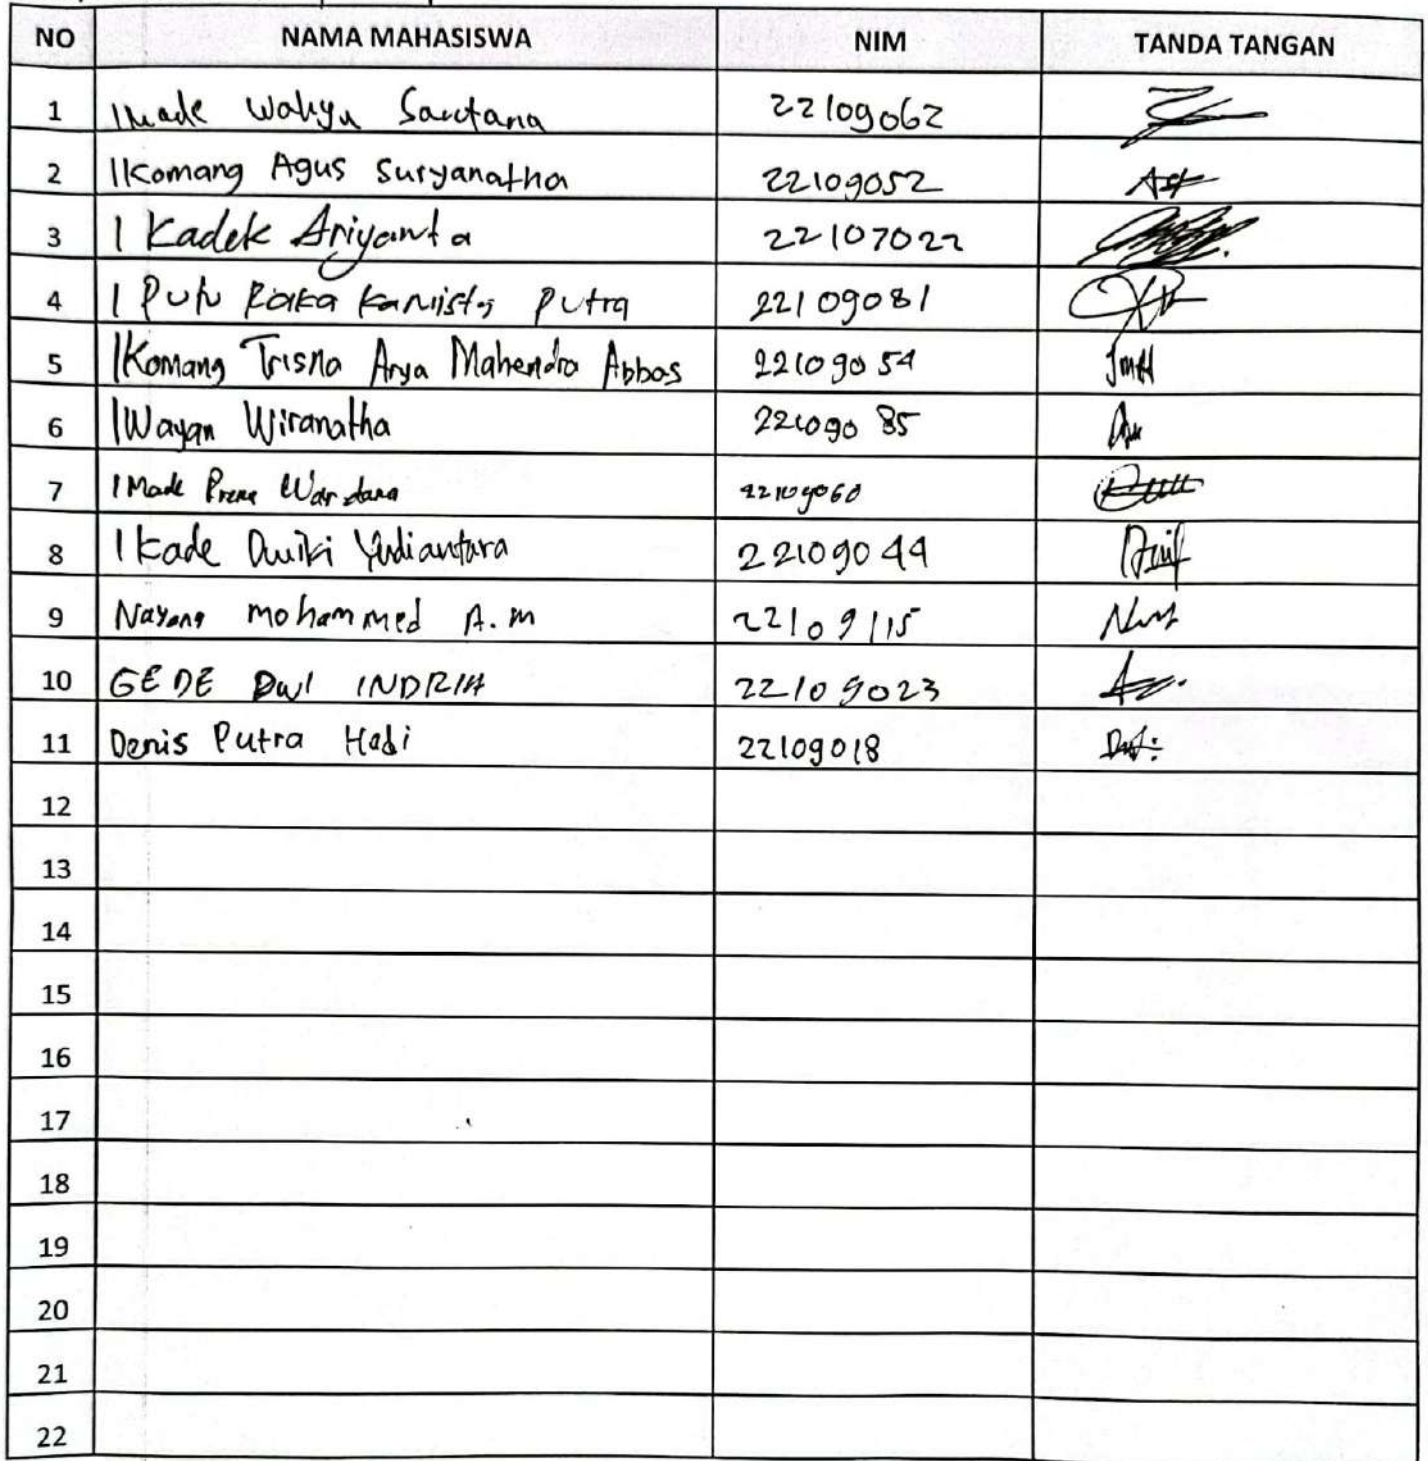 NO NAMA MAHASISWA NIM TANDA TANGAN
1 I Made Wahyu 22109062
2 I Komang Agus Suryanatha 22109052
3 I Kadek Ariyanta 22107022
4 I Putu Raka Putra 22109081
5 I Komang Trisna Arya Mahendra Abbas 22109054
6 I Wayan Wiranatha 22109085
7 I Made Wardana 22109060
8 I Kade Dwiki Yudiantara 22109044
9 Nayang mohammed A.M 22109115
10 GEDE DWI INDRIA 22109023
11 Denis Putra Hadi 22109018
12
13
14
15
16
17
18
19
20
21
22